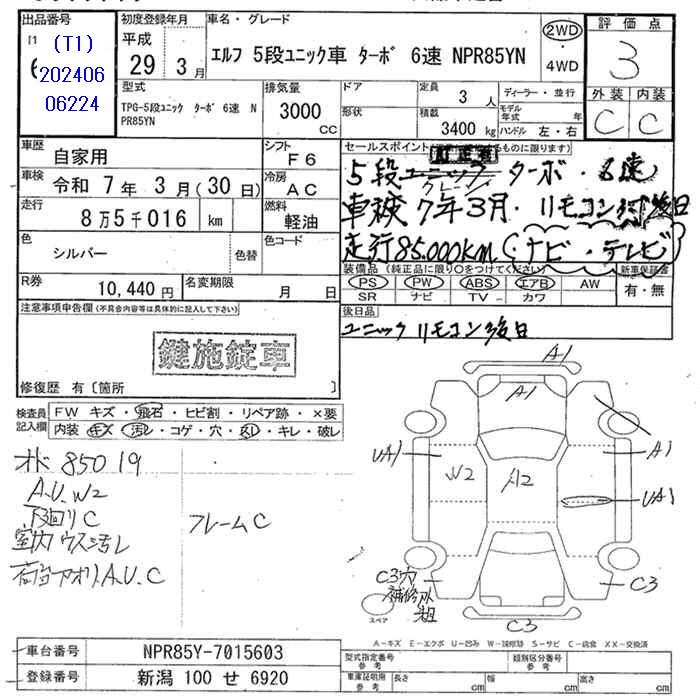 出品番号
(T1)
202406
06224
初度登録年月
平成
29年3月
車名・グレード
エルフ 5段ユニック車 ターボ 6速 NPR85YN
2WD
・
4WD
評価点
3
外装 内装
C C
型式
TPG-5段ユニック ターボ 6速 N
PR85YN
排気量
3000
CC
ドア
形状
定員
3人
積載
3400kg
ディーラー・並行
モデル年式 年
ハンドル 左・右
車歴
自家用
シフト
F6
車検
令和 7年 3月(30日)
冷房
AC
走行
8万5千016 km
燃料
軽油
色
シルバー
色替
色コード
R券
10,440円
名変期限
月 日
セールスポイント
訂正有
5段 クレーン ターボ・6速
車検7年3月・リモコン付後日
走行85,000KM(ナビ・テレビ)
装備品(純正品に限り○をつけてください)
PS PW ABS エアB AW
SR ナビ TV カワ
新車保証書
有・無
後日品
ユニックリモコン後日
注意事項申告欄(不具合内容等は具体的に記入して下さい)
鍵施錠車
修復歴 有〔箇所 〕
検査員
記入欄
FW キズ・飛石・ヒビ割・リペア跡・×要
内装 キズ・汚レ・コゲ・穴・スレ・キレ・破レ
オド 85019
A.U.W2
下回りC
室内ウス汚レ
荷台アオリA.U.C
フレームC
A1
A1
UA1
W2
A2
A1
UA1
C3穴
補修跡
C3
C3
スペア
A-キズ E-エクボ U-凹み W-補修跡 S-サビ C-腐食 XX-交換済
車台番号
NPR85Y-7015603
登録番号
新潟 100 せ 6920
型式指定番号
参考
類別区分番号
参考
車庫証明用
参考
長さ cm
幅 cm
高さ cm